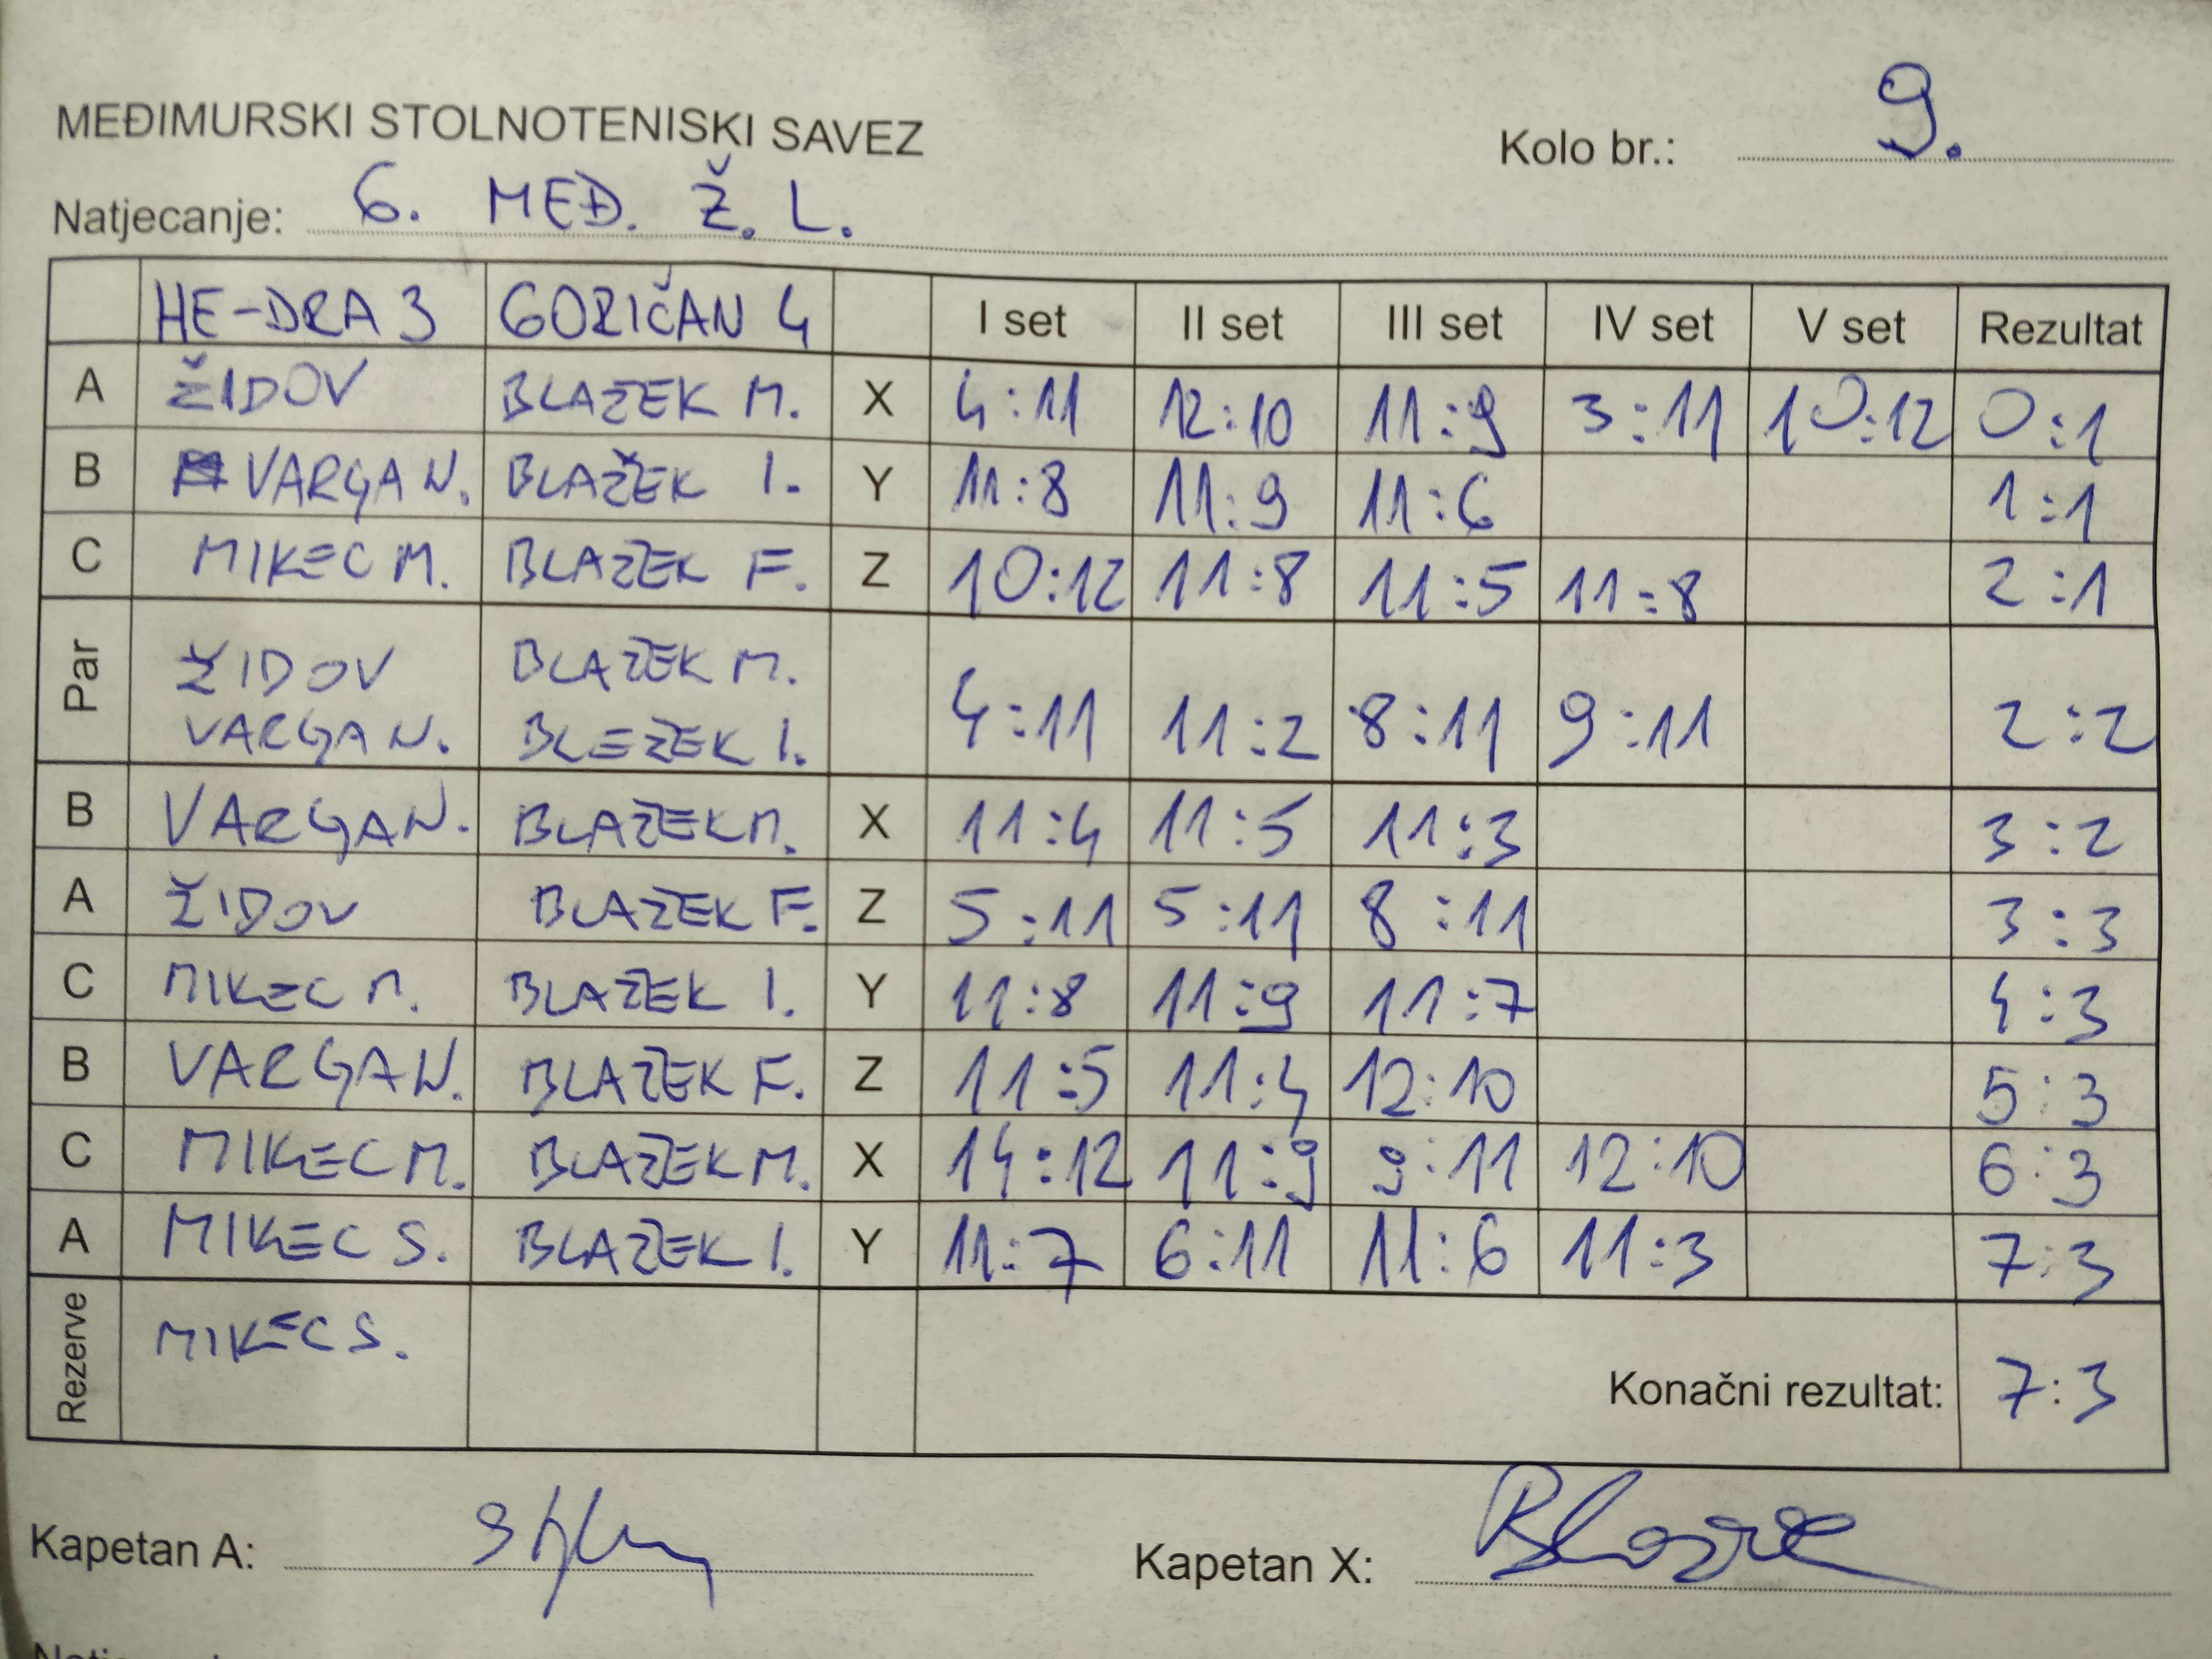 MEĐIMURSKI STOLNOTENISKI SAVEZ
Kolo br.: 9.
Natjecanje: 6. MEĐ. Ž. L.
HE-DRA 3 GORIČAN 4 I set II set III set IV set V set Rezultat
A ŽIDOV BLAZEK M. X 4:11 12:10 11:9 3:11 10:12 0:1
B VARGA N. BLAŽEK I. Y 11:8 11:9 11:6 1:1
C MIKEC M. BLAZEK F. Z 10:12 11:8 11:5 11:8 2:1
Par ŽIDOV BLAZEK M. 4:11 11:2 8:11 9:11 2:2
VARGA N. BLEZEK I.
B VARGA N. BLAZEK M. X 11:4 11:5 11:3 3:2
A ŽIDOV BLAZEK F. Z 5:11 5:11 8:11 3:3
C MIKEC M. BLAZEK I. Y 11:8 11:9 11:7 4:3
B VARGA N. BLAZEK F. Z 11:5 11:4 12:10 5:3
C MIKEC M. BLAZEK M. X 14:12 11:9 9:11 12:10 6:3
A MIKEC S. BLAZEK I. Y 11:7 6:11 11:6 11:3 7:3
Rezerve MIKEC S. Konačni rezultat: 7:3
Kapetan A: Kapetan X: